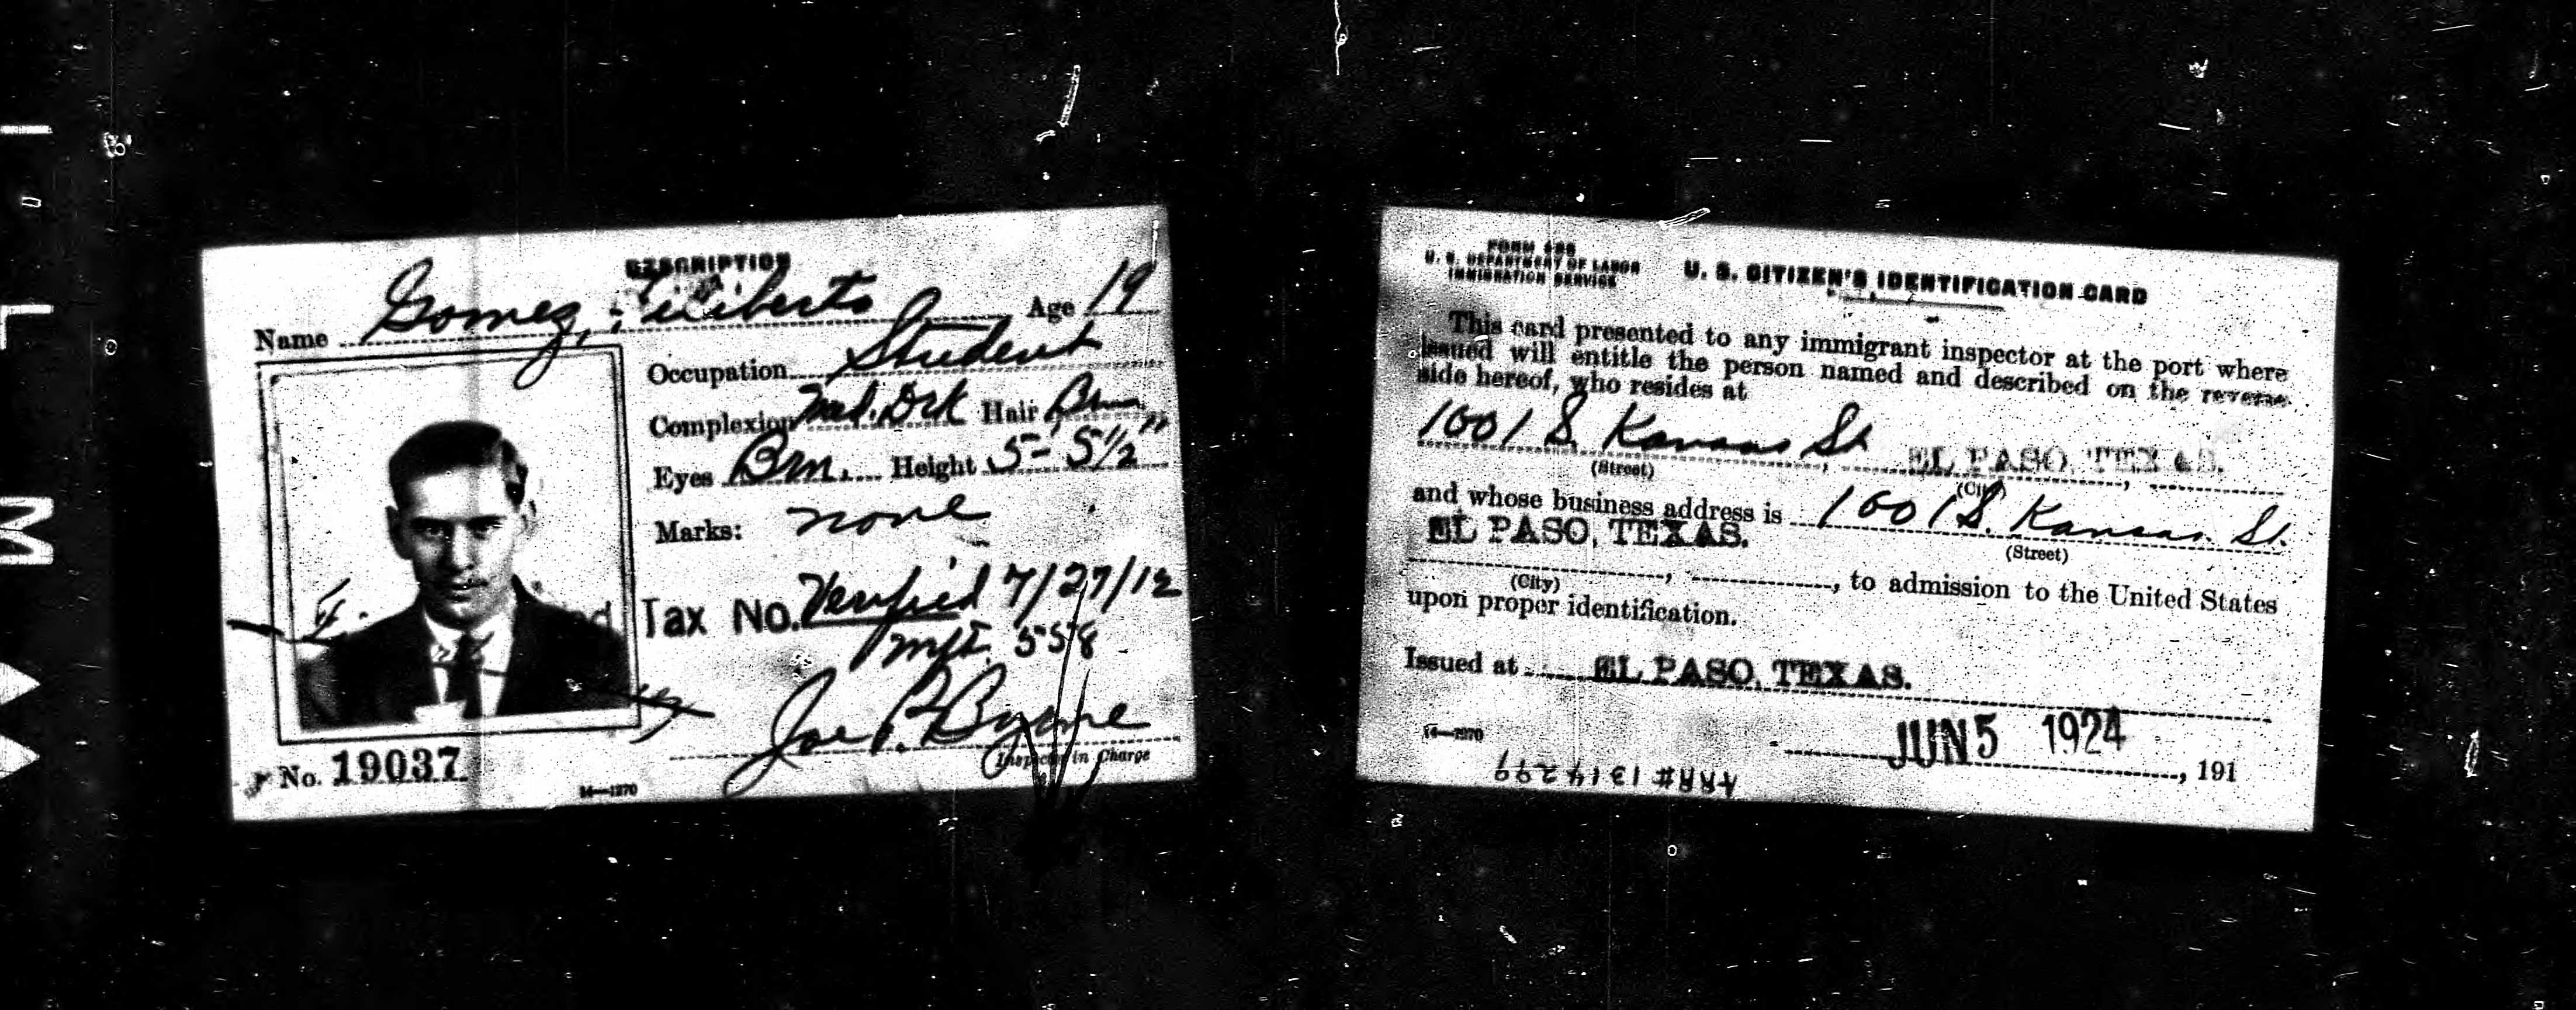 DESCRIPTION
Name Gomez, Filiberto Age 19
Occupation Student
Complexion Med. Drk Hair Brn
Eyes Brn. Height 5-5½"
Marks: none
Tax No. Verified 7/27/12
Mft. 558
Joe P. Byrne
Inspector in Charge
No. 19037
14—1270
FORM
U. S. DEPARTMENT OF LABOR
IMMIGRATION SERVICE
U. S. CITIZEN'S IDENTIFICATION CARD
This card presented to any immigrant inspector at the port where
issued will entitle the person named and described on the reverse
side hereof, who resides at
1001 S. Kansas St. EL PASO, TEXAS.
(Street) (City)
and whose business address is 1001 S. Kansas St.
EL PASO, TEXAS. (Street)
(City) , to admission to the United States
upon proper identification.
Issued at EL PASO, TEXAS.
JUN 5 1924
14—1270 , 191
ARR# 1314299